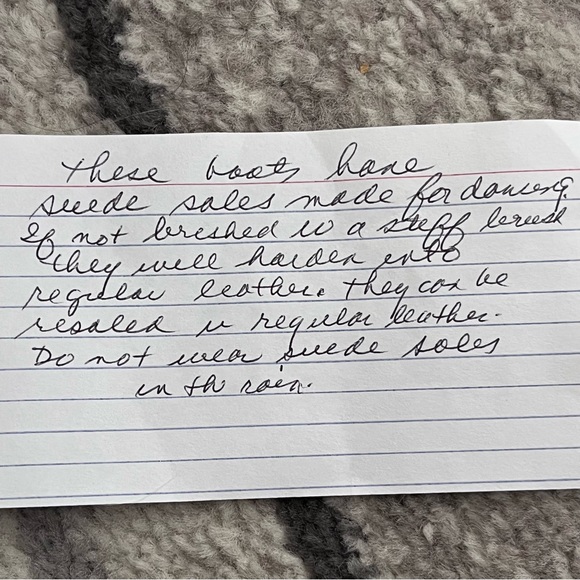 These boots have
suede soles made for dancing.
If not brushed w a stiff brush
they will harden into
regular leather. They can be
resoled w regular leather.
Do not wear suede soles
in the rain.